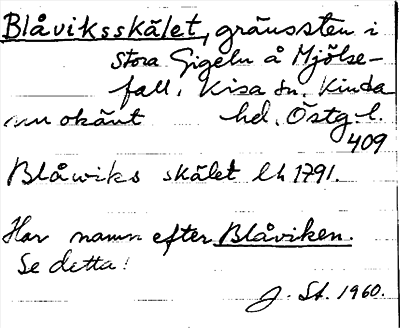 Blåviksskälet, gränssten i
stora Gigeln å Mjölse-
fall, Kisa sn. Kinda
nu okänt hd. Östg. l.
409
Blåwiks skälet lh 1791.
Har namn efter Blåviken.
Se detta!
J. St. 1960.